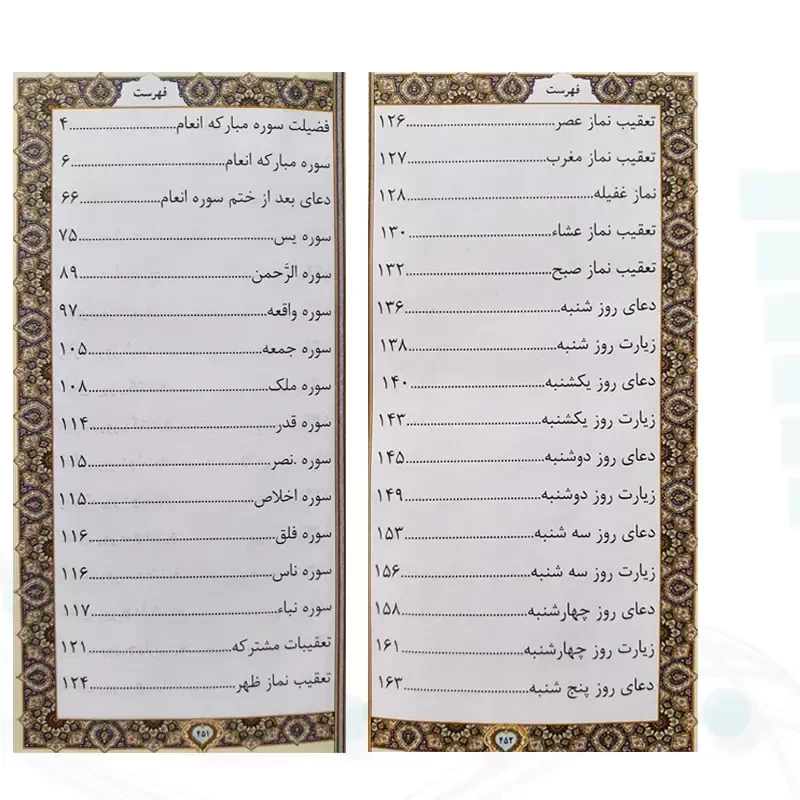 فهرست
فضیلت سوره مبارکه انعام..........................۴
سوره مبارکه انعام....................................۶
دعای بعد از ختم سوره انعام...................۶۶
سوره یس..........................................۷۵
سوره الرَّحمن......................................۸۹
سوره واقعه........................................۹۷
سوره جمعه......................................۱۰۵
سوره ملک.......................................۱۰۸
سوره قدر........................................۱۱۴
سوره .نصر.......................................۱۱۵
سوره اخلاص....................................۱۱۵
سوره فلق........................................۱۱۶
سوره ناس.......................................۱۱۶
سوره نباء.........................................۱۱۷
تعقیبات مشترکه................................۱۲۱
تعقیب نماز ظهر.................................۱۲۴
۴۵۱
فهرست
تعقیب نماز عصر.................................۱۲۶
تعقیب نماز مغرب...............................۱۲۷
نماز غفیله........................................۱۲۸
تعقیب نماز عشاء...............................۱۳۰
تعقیب نماز صبح................................۱۳۲
دعای روز شنبه..................................۱۳۶
زیارت روز شنبه..................................۱۳۸
دعای روز یکشنبه...............................۱۴۰
زیارت روز یکشنبه...............................۱۴۳
دعای روز دوشنبه...............................۱۴۵
زیارت روز دوشنبه...............................۱۴۹
دعای روز سه شنبه.............................۱۵۳
زیارت روز سه شنبه.............................۱۵۶
دعای روز چهارشنبه............................۱۵۸
زیارت روز چهارشنبه............................۱۶۱
دعای روز پنج شنبه.............................۱۶۳
۴۵۲